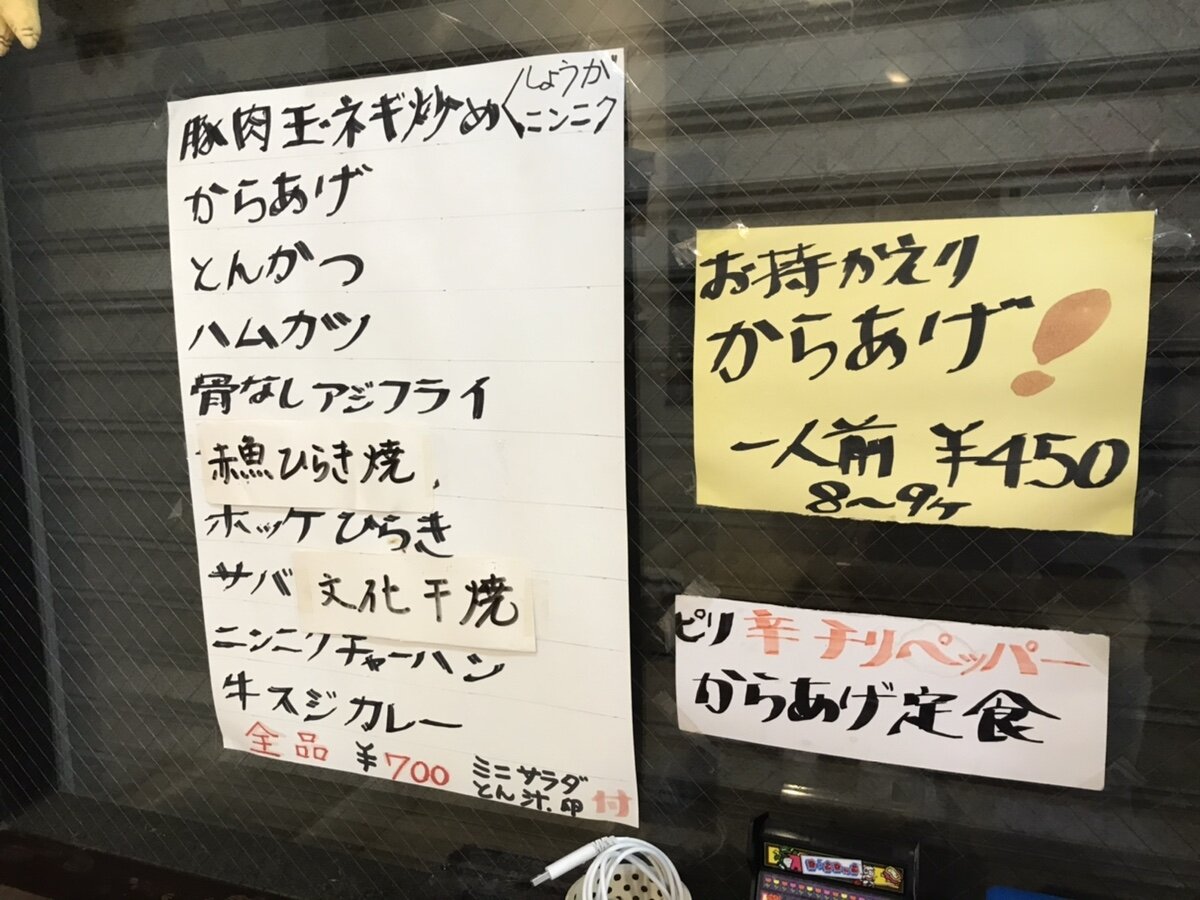 豚肉玉ネギ炒め
しょうが
ニンニク
からあげ
とんかつ
ハムカツ
骨なしアジフライ
赤魚ひらき焼
ホッケひらき
サバ文化干焼
ニンニクチャーハン
牛スジカレー
全品 ¥700
ミニサラダ
とん汁、卵付
お持かえり
からあげ!
一人前 ¥450
8〜9ヶ
ピリ辛チリペッパー
からあげ定食